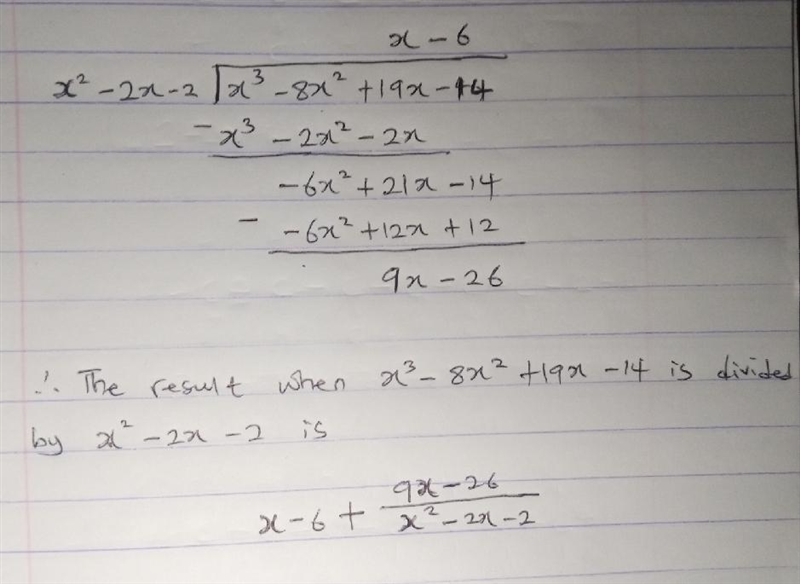 x - 6
x² - 2x - 2 | x³ - 8x² + 19x - 14
- x³ - 2x² - 2x
-6x² + 21x - 14
- -6x² + 12x + 12
9x - 26
∴ The result when x³ - 8x² + 19x - 14 is divided
by x² - 2x - 2 is
x - 6 + (9x - 26)/(x² - 2x - 2)